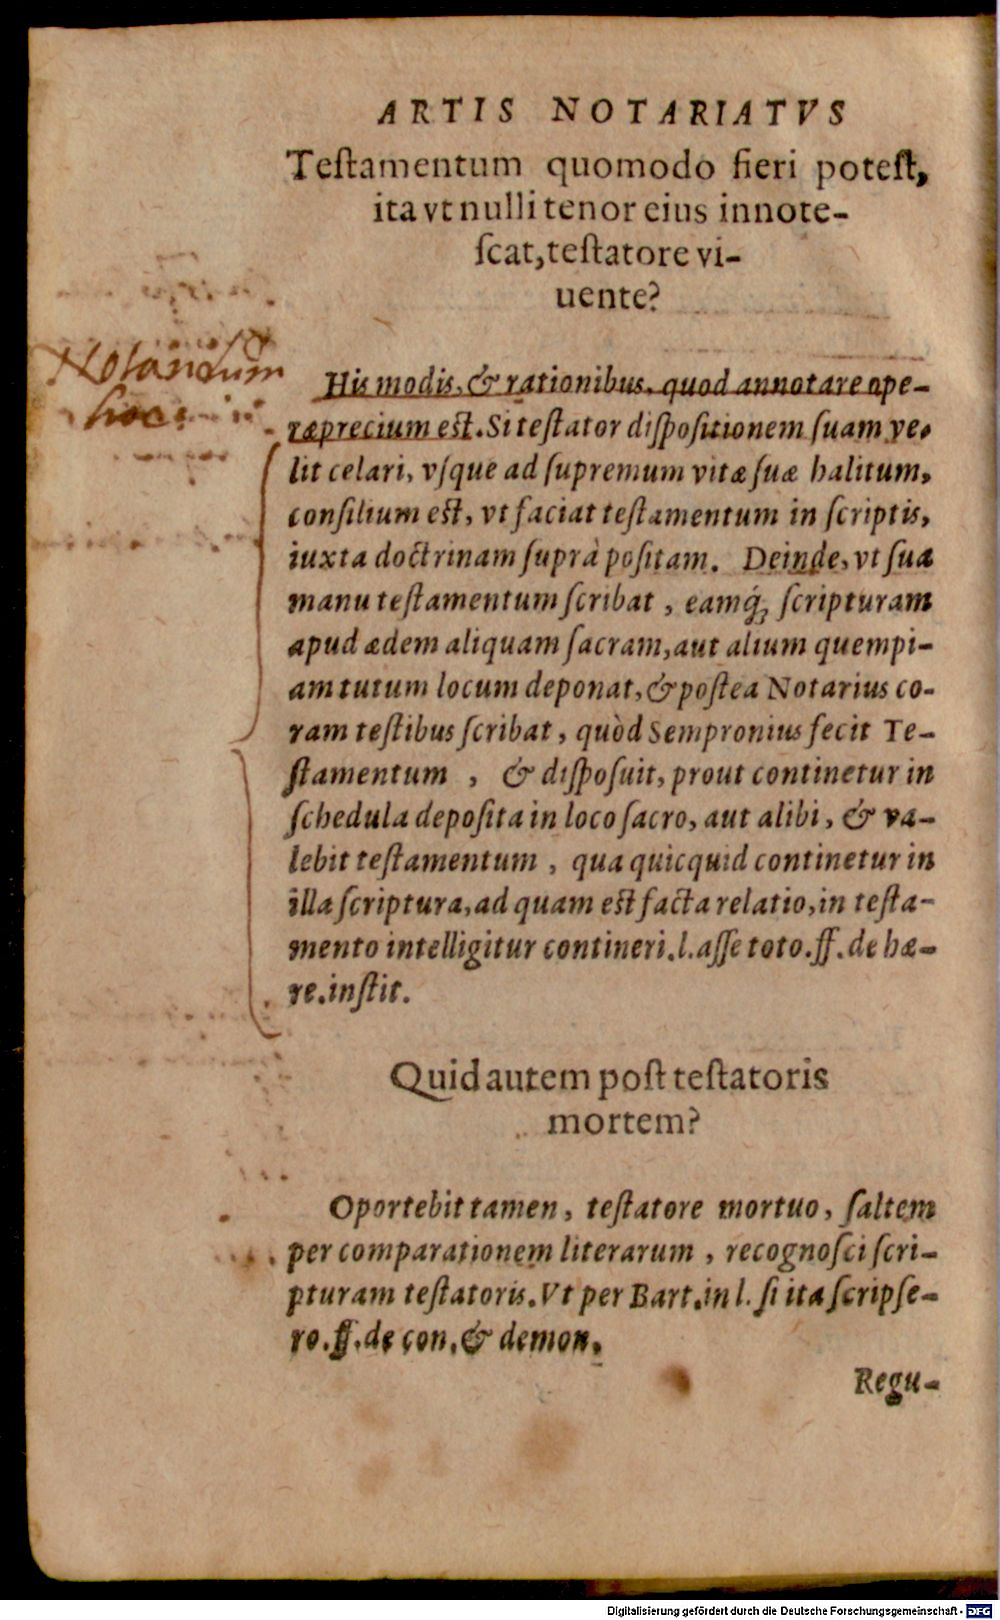 ARTIS NOTARIATVS
Teſtamentum quomodo fieri poteſt,
ita vt nulli tenor eius innote-
ſcat, teſtatore vi-
uente?
Notandum
hoc:
His modis, & rationibus, quod annotare ope-
ræprecium est. Si teſtator diſpoſitionem ſuam ve-
lit celari, vſque ad ſupremum vitæ ſuæ halitum,
conſilium est, vt faciat teſtamentum in ſcriptis,
iuxta doctrinam ſuprà poſitam. Deinde, vt ſua
manu teſtamentum ſcribat, eamq́; ſcripturam
apud ædem aliquam ſacram, aut alium quempi-
am tutum locum deponat, & poſtea Notarius co-
ram teſtibus ſcribat, quòd Sempronius fecit Te-
ſtamentum, & diſpoſuit, prout continetur in
ſchedula depoſita in loco ſacro, aut alibi, & va-
lebit teſtamentum, qua quicquid continetur in
illa ſcriptura, ad quam est facta relatio, in teſta-
mento intelligitur contineri. l. aſſe toto. ff. de hæ-
re. inſtit.
Quid autem post teſtatoris
mortem?
Oportebit tamen, teſtatore mortuo, ſaltem
per comparationem literarum, recognoſci ſcri-
pturam teſtatoris. Vt per Bart. in l. ſi ita ſcripſe-
ro. ff. de con. & demon.
Regu-
Digitalisierung gefördert durch die Deutsche Forschungsgemeinschaft - DFG